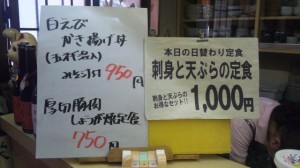 白えび
かき揚げ丼
みそ汁付 950円
厚切豚肉
しょうが焼定食
750円
本日の日替わり定食
刺身と天ぷらの定食
刺身と天ぷらの
お得なセット!!
1,000円